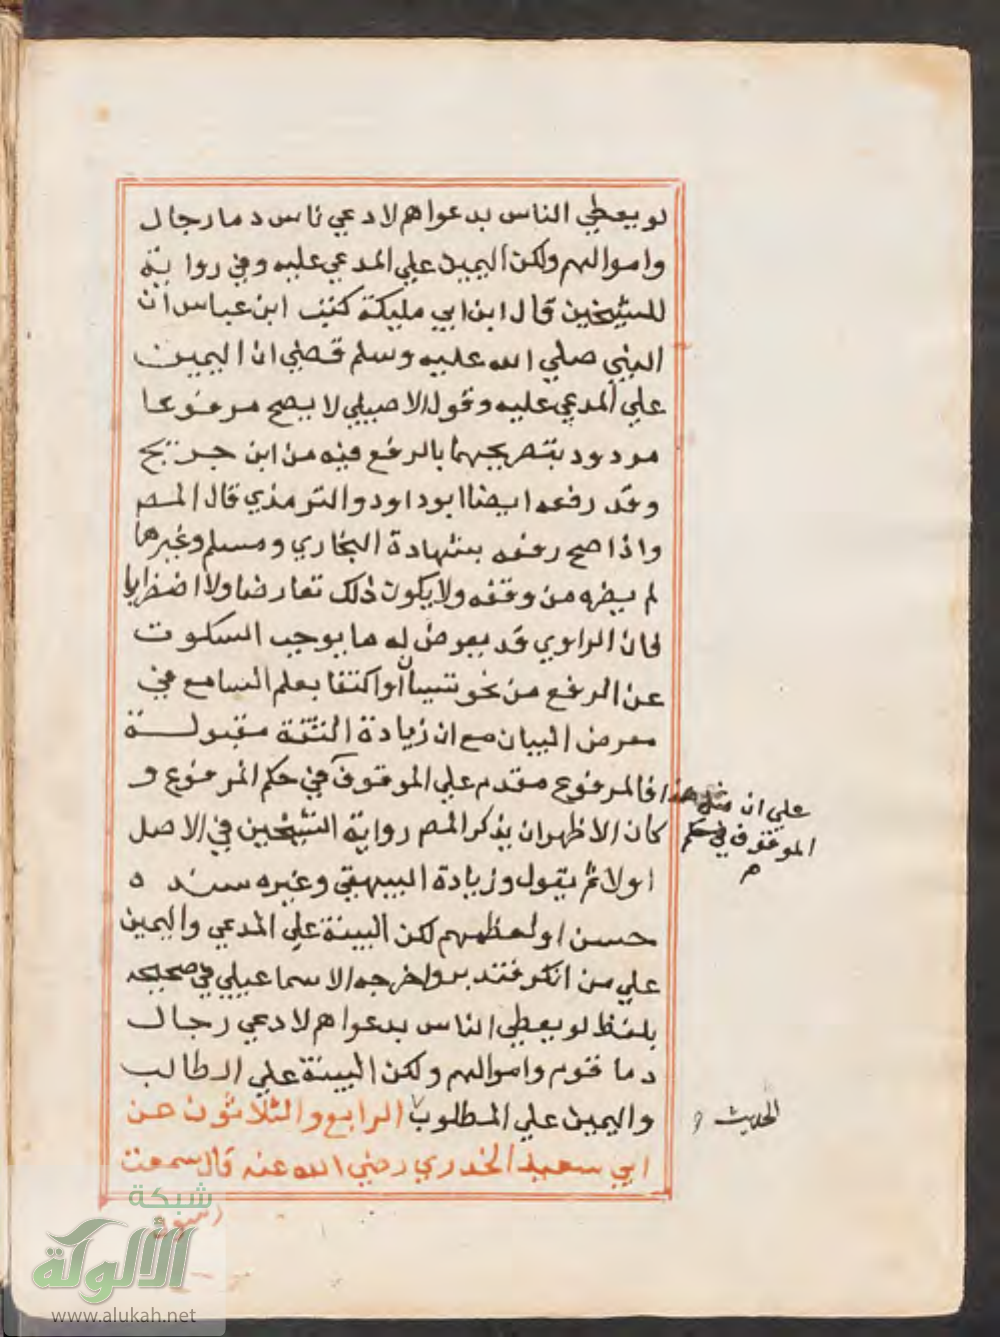 لو يعطي الناس بدعواهم لادعي ناس دما رجال
واموالهم ولكن اليمين علي المدعي عليه وفي رواية
للشيخين قال ابن ابي مليكة كتب ابن عباس ان
النبي صلي الله عليه وسلم قضي ان اليمين
علي المدعي عليه وقول الاصيلي لا يصح مرفوعا
مردود بتصريحهما بالرفع فيه من ابن جريج
وقد رفعه ايضا ابوداود والترمذي قال المص
واذا صح رفعه بشهادة البخاري ومسلم وغيرهما
لم يضره من وقفه ولا يكون ذلك تعارضا ولا اضطرابا
فان الراوي قد يعرض له ما يوجب السكوت
عن الرفع من نحو نسيان أو اكتفا بعلم السامع في
معرض البيان مع ان زيادة الثقة مقبولة
فالمرفوع مقدم علي الموقوف في حكم المرفوع و
علي ان مثل هذا
الموقوف في حكم
م
كان الاظهر ان يذكر المص رواية الشيخين في الاصل
اولا ثم يقول وزيادة البيهقي وغيره سند ه
حسن او لفظهم لكن البينة علي المدعي واليمين
علي من انكر فتدبر واخرجه الاسماعيلي في صحيحه
بلفظ لو يعطي الناس بدعواهم لادعي رجال
دما قوم واموالهم ولكن البينة علي الطالب
واليمين علي المطلوب الرابع والثلاثون عن
الحديث
ابي سعيد الخدري رضي الله عنه قال سمعت
رسول
شبكة
الألوكة
www.alukah.net